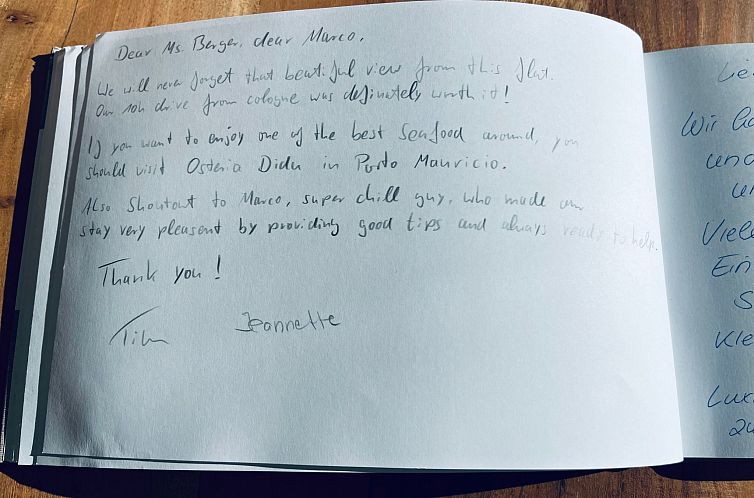 Dear Ms. Berger, dear Marco,
We will never forget that beautiful view from this flat.
Our 10h drive from cologne was definately worth it!
If you want to enjoy one of the best Seafood around, you
should visit Osteria Didu in Porto Mauricio.
Also Shoutout to Marco, super chill guy, who made our
stay very pleasent by providing good tips and always ready to help.
Thank you!
Tim Jeannette
Lie
Wir ha
und
Viele
Ein
S
Kle
Lux